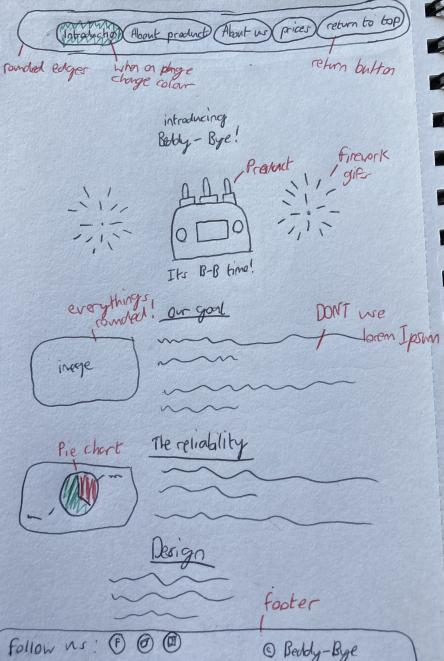 Introduction
About product
About us
prices
return to top
rounded edges
when on page
change colour
return button
introducing
Beddy-Bye!
Product
firework
gifs
It's B-B time!
everythings
rounded!
our goal
DON'T use
lorem Ipsum
image
Pie chart
The reliability
Design
footer
follow us:
© Beddy-Bye